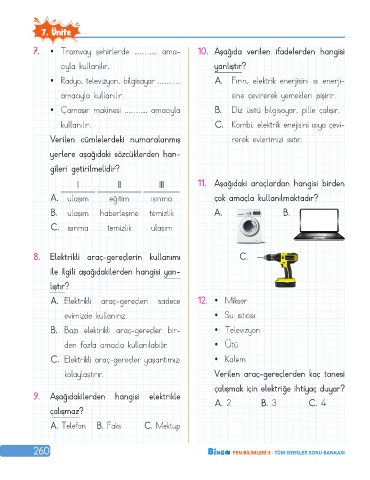 7. Ünite
7. • Tramvay şehirlerde ............ ama-
cıyla kullanılır.
• Radyo, televizyon, bilgisayar ............
amacıyla kullanılır.
• Çamaşır makinesi ............ amacıyla
kullanılır.
Verilen cümlelerdeki numaralanmış
yerlere aşağıdaki sözcüklerden han-
gileri getirilmelidir?
I II III
A. ulaşım eğitim ısınma
B. ulaşım haberleşme temizlik
C. ısınma temizlik ulaşım
8. Elektrikli araç-gereçlerin kullanımı
ile ilgili aşağıdakilerden hangisi yan-
lıştır?
A. Elektrikli araç-gereçleri sadece
evimizde kullanırız.
B. Bazı elektrikli araç-gereçler bir-
den fazla amaçla kullanılabilir.
C. Elektrikli araç-gereçler yaşantımızı
kolaylaştırır.
9. Aşağıdakilerden hangisi elektrikle
çalışmaz?
A. Telefon B. Faks C. Mektup
10. Aşağıda verilen ifadelerden hangisi
yanlıştır?
A. Fırın, elektrik enerjisini ısı enerji-
sine çevirerek yemekleri pişirir.
B. Diz üstü bilgisayar, pille çalışır.
C. Kombi, elektrik enerjisini ısıya çevi-
rerek evlerimizi ısıtır.
11. Aşağıdaki araçlardan hangisi birden
çok amaçla kullanılmaktadır?
A. B.
C.
12. • Mikser
• Su ısıtıcısı
• Televizyon
• Ütü
• Kalem
Verilen araç-gereçlerden kaç tanesi
çalışmak için elektriğe ihtiyaç duyar?
A. 2 B. 3 C. 4
260
BiNGO FEN BİLİMLERİ 3 - TÜM DERSLER SORU BANKASI